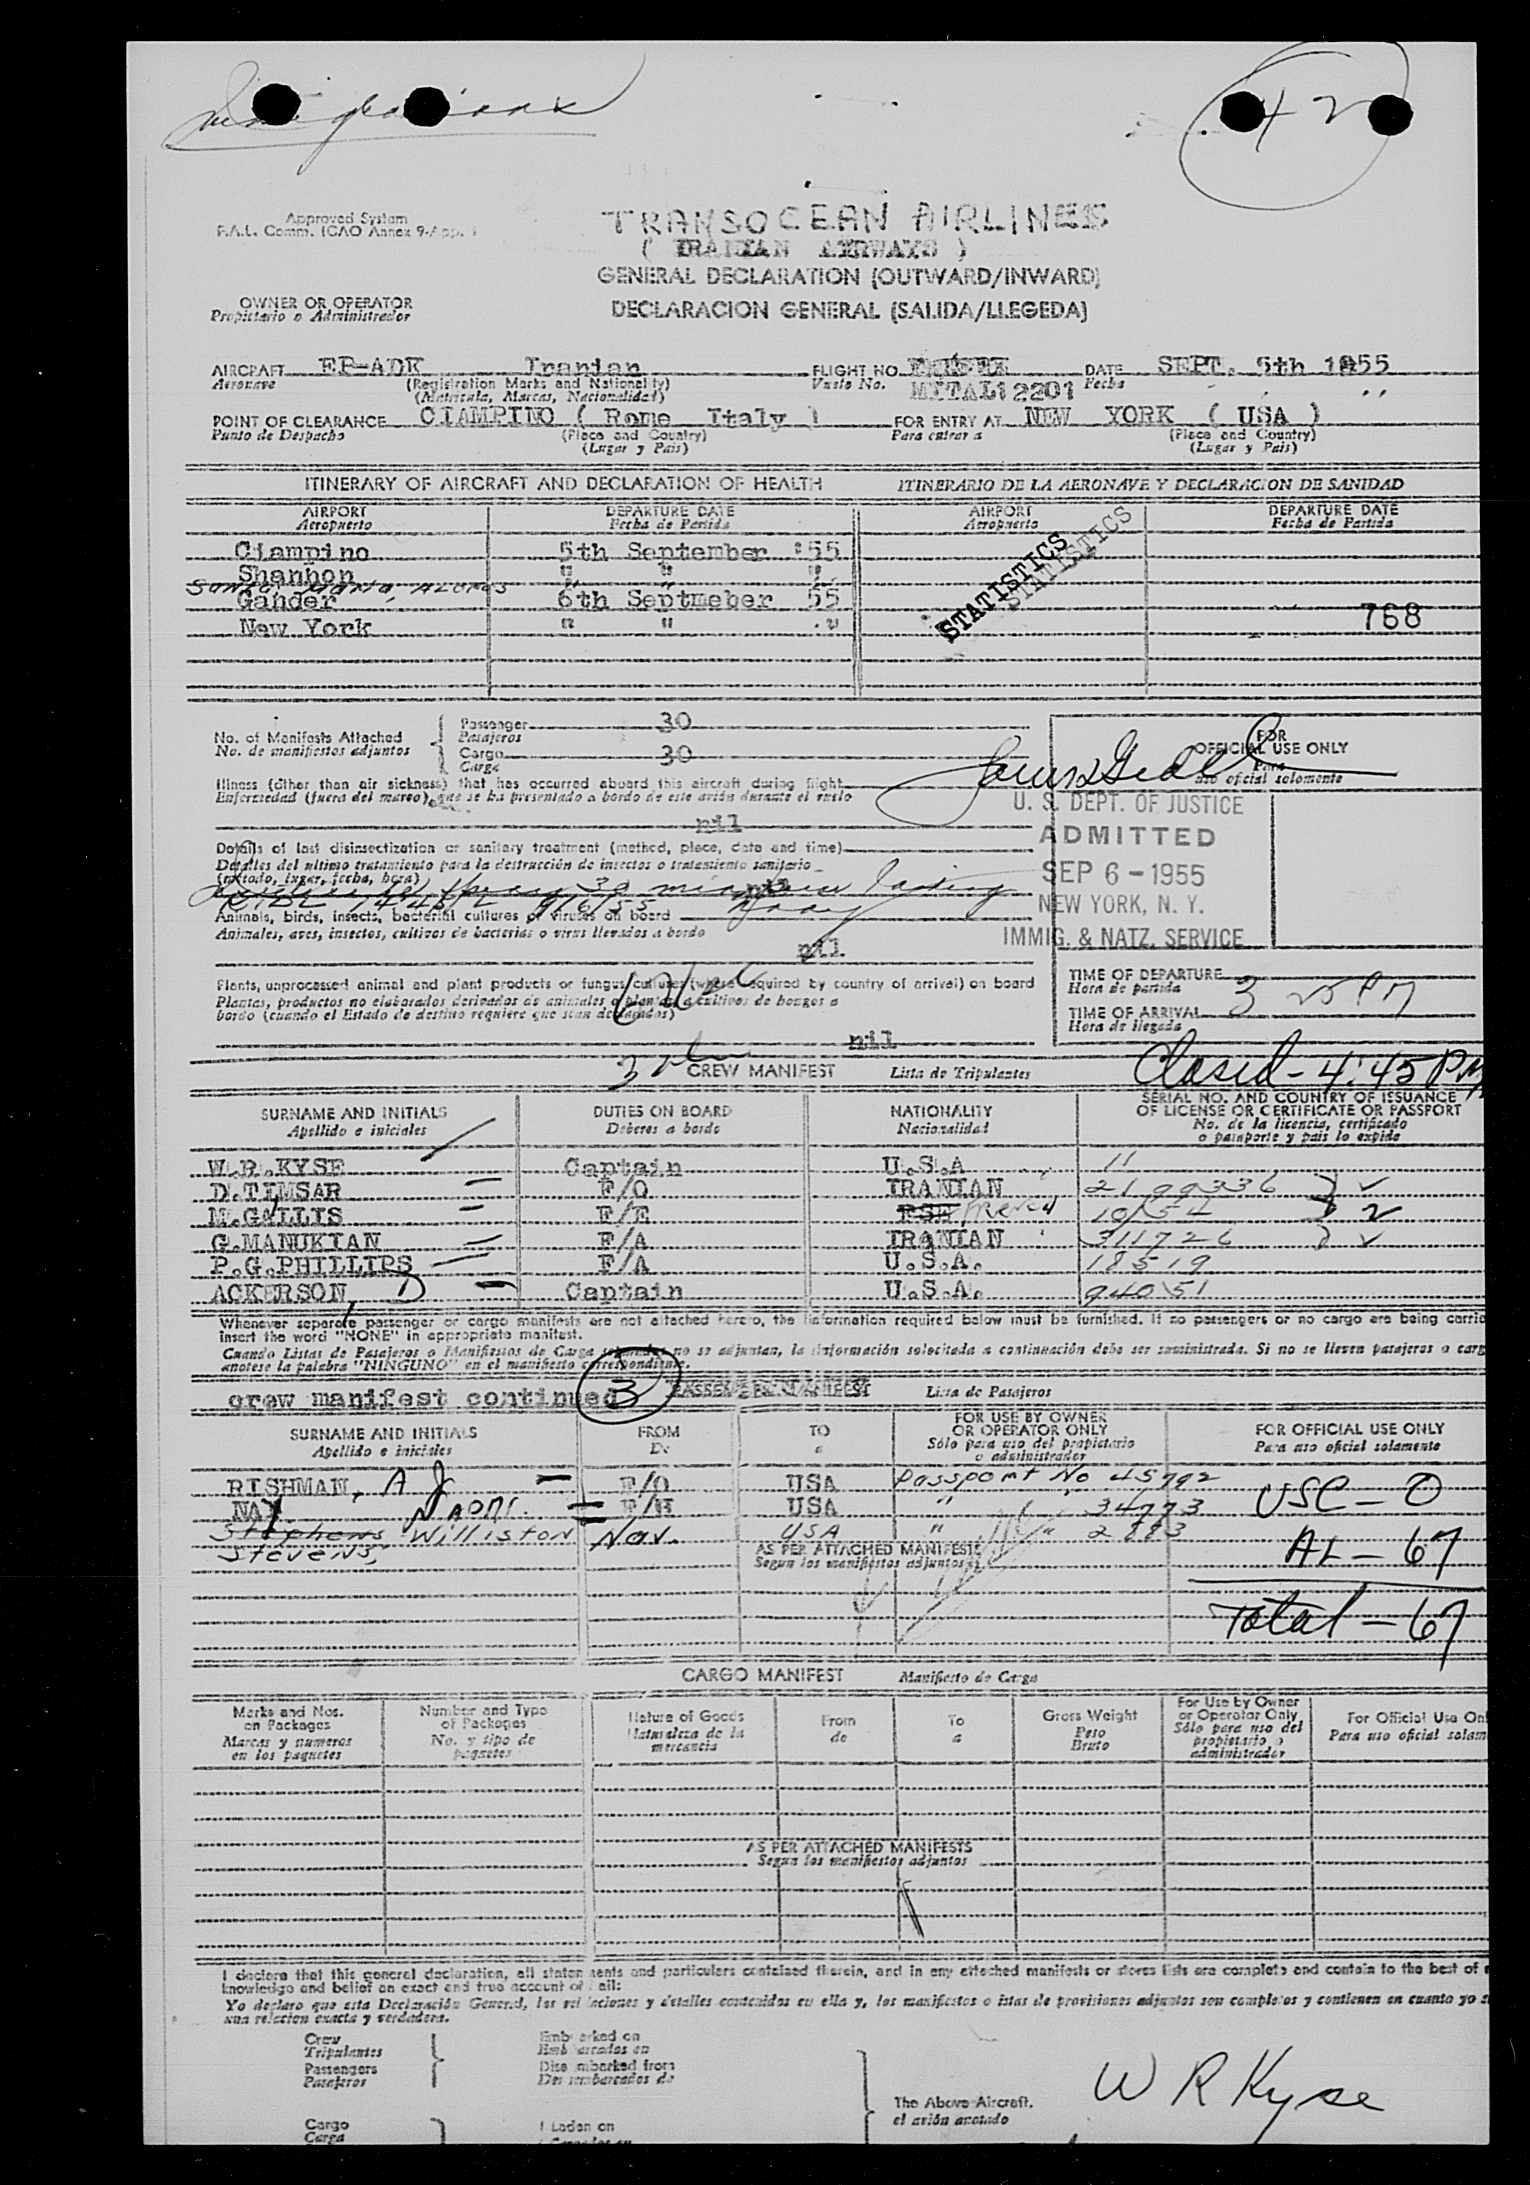 42
Approved System
F.A.L. Comm. ICAO Annex 9-App. 1
TRANSOCEAN AIRLINES
( IRANIAN AIRWAYS )
GENERAL DECLARATION (OUTWARD/INWARD)
OWNER OR OPERATOR
Propietario o Administrador
DECLARACION GENERAL (SALIDA/LLEGEDA)
AIRCRAFT EP-ADK Iranian FLIGHT NO. DATE SEPT. 5th 1955
Aeronave (Registration Marks and Nationality) Vuelo No. MITAL12201 Fecha
(Matricula, Marcas, Nacionalidad)
POINT OF CLEARANCE CIAMPINO ( Rome Italy ) FOR ENTRY AT NEW YORK ( USA )
Punto de Despacho (Place and Country) Para entrar a (Place and Country)
(Lugar y Pais) (Lugar y Pais)
ITINERARY OF AIRCRAFT AND DECLARATION OF HEALTH ITINERARIO DE LA AERONAVE Y DECLARACION DE SANIDAD
AIRPORT DEPARTURE DATE AIRPORT DEPARTURE DATE
Aeropuerto Fecha de Partida Aeropuerto Fecha de Partida
Ciampino 5th September '55
Shannon " " "
Santa Maria, Azores " "
Gander 6th Septmeber 55
New York " " "
STATISTICS
STATISTICS
768
No. of Manifests Attached Passenger 30
No. de manifiestos adjuntos Pasajeros
Cargo 30
Carga
FOR
OFFICIAL USE ONLY
Para
uso oficial solamente
Illness (other than air sickness) that has occurred aboard this aircraft during flight
Enfermedad (fuera del mareo), que se ha presentado a bordo de este avión durante el vuelo
nil
U. S. DEPT. OF JUSTICE
ADMITTED
SEP 6 - 1955
NEW YORK, N. Y.
IMMIG. & NATZ. SERVICE
Details of last disinsectization or sanitary treatment (method, place, date and time)
Detalles del ultimo tratamiento para la destrucción de insectos o tratamiento sanitario
(método, lugar, fecha, hora)
Animals, birds, insects, bacterial cultures or viruses on board
Animales, aves, insectos, cultivos de bacterias o virus llevados a bordo
nil
Plants, unprocessed animal and plant products or fungus cultures (where required by country of arrival) on board
Plantas, productos no elaborados derivados de animales o plantas, o cultivos de hongos a
bordo (cuando el Estado de destino requiere que sean declarados)
nil
TIME OF DEPARTURE
Hora de partida
3 25 PM
TIME OF ARRIVAL
Hora de llegada
Closed - 4:45 PM
CREW MANIFEST Lista de Tripulantes
SURNAME AND INITIALS DUTIES ON BOARD NATIONALITY SERIAL NO. AND COUNTRY OF ISSUANCE
OF LICENSE OR CERTIFICATE OR PASSPORT
Apellido e iniciales Deberes a bordo Nacionalidad No. de la licencia, certificado
o pasaporte y pais lo expide
W.R.KYSE Captain U.S.A 11
D.TIMSAR F/O IRANIAN 2199336
M.GALLIS F/E French 10154
G.MANUKIAN F/A IRANIAN 311726
P.G.PHILLIPS F/A U.S.A. 18519
ACKERSON, D Captain U.S.A. 94051
Whenever separate passenger or cargo manifests are not attached hereto, the information required below must be furnished. If no passengers or no cargo are being carrie
insert the word "NONE" in appropriate manifest.
Cuando Listas de Pasajeros o Manifiestos de Carga separados no se adjuntan, la información solocitada a continuación debe ser suministrada. Si no se lleven pasajeros o carg
anotese la palabra "NINGUNO" en el manifiesto correspondiente.
crew manifest continued 3 PASSENGER MANIFEST Lista de Pasajeros
SURNAME AND INITIALS FROM TO FOR USE BY OWNER
OR OPERATOR ONLY FOR OFFICIAL USE ONLY
Apellido e iniciales De a Sólo para uso del propietario
o administrador Para uso oficial solamente
RISHMAN, A J F/O USA Passport No 45792
NAY, NAOMI F/H USA " " 34773
Stephens Williston Nav. USA " " 2883
Stevens,
AS PER ATTACHED MANIFESTS
Segun los manifiestos adjuntos
USC - 0
AL - 67
Total - 67
CARGO MANIFEST Manifiesto de Carga
Marks and Nos.
on Packages
Marcas y numeros
en los paquetes
Number and Type
of Packages
No. y tipo de
paquetes
Nature of Goods
Naturaleza de la
mercancia
From
de
To
a
Gross Weight
Peso
Bruto
For Use by Owner
or Operator Only
Sólo para uso del
propietario o
administrador
For Official Use Onl
Para uso oficial solam
AS PER ATTACHED MANIFESTS
Segun los manifiestos adjuntos
I declare that this general declaration, all statements and particulars contained therein, and in any attached manifests or stores lists are complete and contain to the best of
knowledge and belief an exact and true account of all:
Yo declaro que esta Declaración General, los relaciones y detalles contenidos en ella y, los manifiestos o istas de provisiones adjuntos son completos y contienen en cuanto yo s
una relacion exacta y verdadera.
Crew
Tripulantes
Passengers
Pasajeros
Embarked on
Embarcados en
Disembarked from
Desembarcados de
The Above Aircraft.
el avión anotado
W R Kyse
Cargo
Carga
Laden on